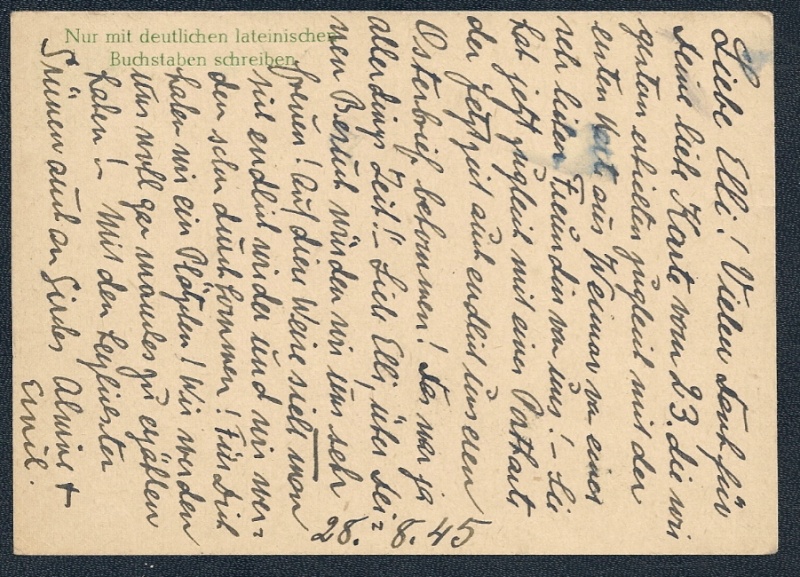 Nur mit deutlichen lateinischen
Buchstaben schreiben
28. 8. 45
Liebe Elli! Vielen Dank für
Deine liebe Karte vom 23. die wir
gestern erhielten zugleich mit der
ersten Karte aus Weimar von einer
sehr lieben Freundin von uns! – Sie
hat jetzt zugleich mit einer Postkarte
der Jetztzeit auch endlich unseren
Osterbrief bekommen! Das war ja
allerdings Zeit!! – Liebe Elli, über Dei=
nen Besuch würden wir uns sehr
freuen! Auf diese Weise sieht man
sich endlich wieder und wir wer=
den schon durchkommen! Für Dich
haben wir ein Plätzchen! Wir werden
uns wohl gar manches zu erzählen
haben! – Mit den herzlichsten
Grüssen auch an Gerdes Alwine +
Emil.